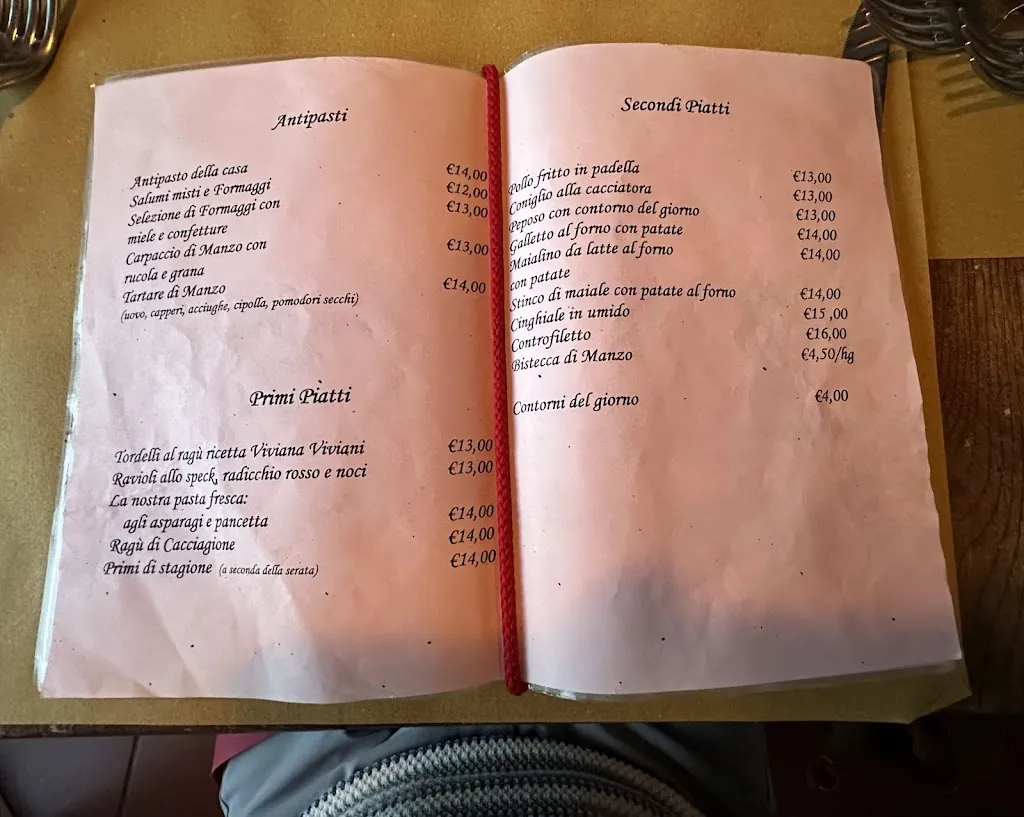 Antipasti
Antipasto della casa €14,00
Salumi misti e Formaggi €12,00
Selezione di Formaggi con €13,00
miele e confetture
Carpaccio di Manzo con €13,00
rucola e grana
Tartare di Manzo €14,00
(uovo, capperi, acciughe, cipolla, pomodori secchi)
Primi Piatti
Tordelli al ragù ricetta Viviana Viviani €13,00
Ravioli allo speck, radicchio rosso e noci €13,00
La nostra pasta fresca:
agli asparagi e pancetta €14,00
Ragù di Cacciagione €14,00
Primi di stagione (a seconda della serata) €14,00
Secondi Piatti
Pollo fritto in padella €13,00
Coniglio alla cacciatora €13,00
Peposo con contorno del giorno €13,00
Galletto al forno con patate €14,00
Maialino da latte al forno €14,00
con patate
Stinco di maiale con patate al forno €14,00
Cinghiale in umido €15,00
Controfiletto €16,00
Bistecca di Manzo €4,50/hg
Contorni del giorno €4,00